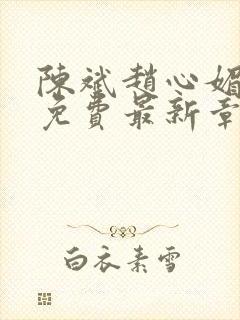 陳斌趙心媚
免費最新章
白衣素雪